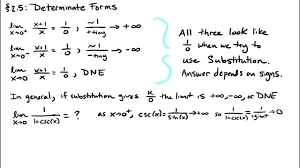 §2.5: Determinate Forms
lim x→0⁺ (x+1)/x = 1/0, ~1/+tiny → +∞
lim x→0⁻ (x+1)/x = 1/0, ~1/-tiny → -∞
lim x→0 (x+1)/x = 1/0, DNE
All three look like
1/0 when we try to
use Substitution.
Answer depends on signs.
In general, if substitution gives k/0 the limit is +∞, -∞, or DNE
lim x→0⁺ 1/(1+csc(x)) = ? as x→0⁺, csc(x) = 1/sin(x) → +∞ so 1/(1+csc(x)) → 0